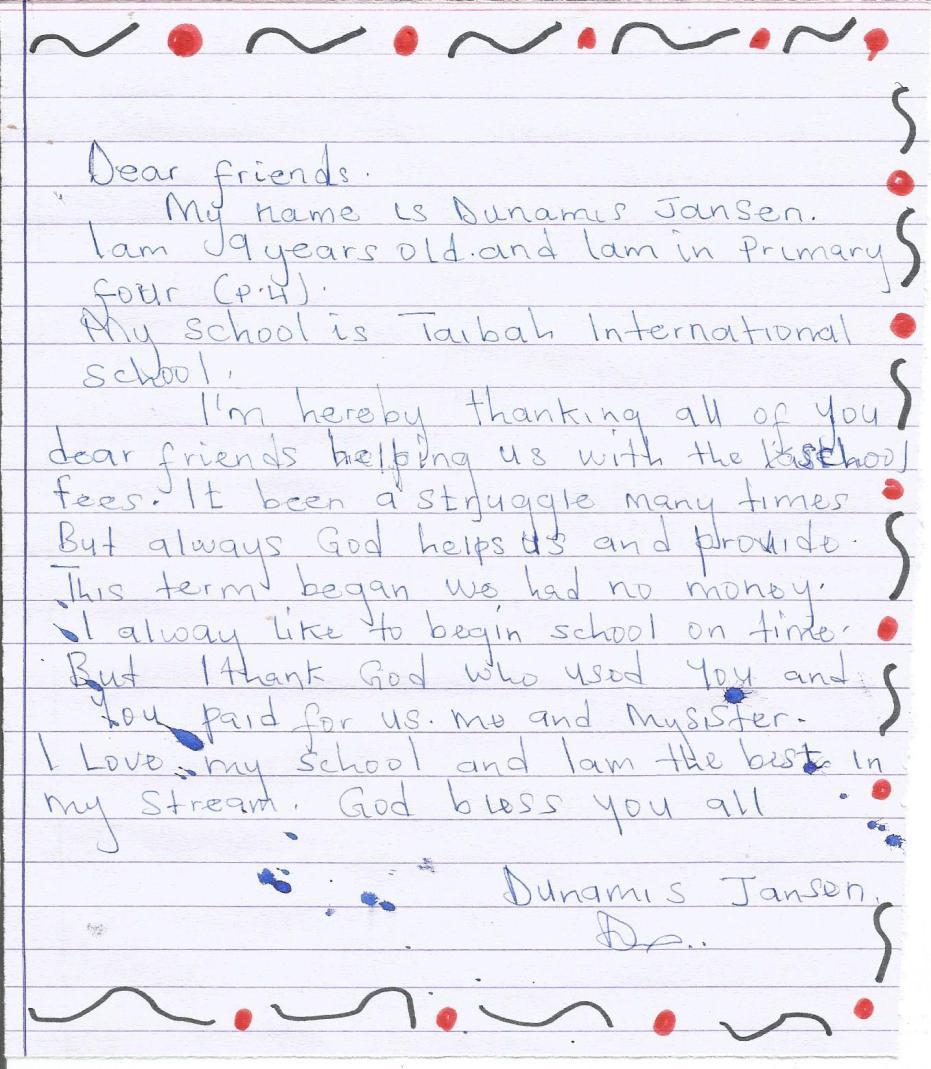 Dear friends.
My name is Dunamis Jansen.
I am 9 years old. and I am in Primary
four (p.4).
My school is Taibah International
school.
I'm hereby thanking all of you
dear friends helping us with the school
fees. It been a struggle many times
But always God helps us and provide.
This term began we had no money.
I alway like to begin school on time.
But I thank God who used you and
You paid for us. me and my sister.
I Love my school and I am the best in
my stream. God bless you all
Dunamis Jansen.